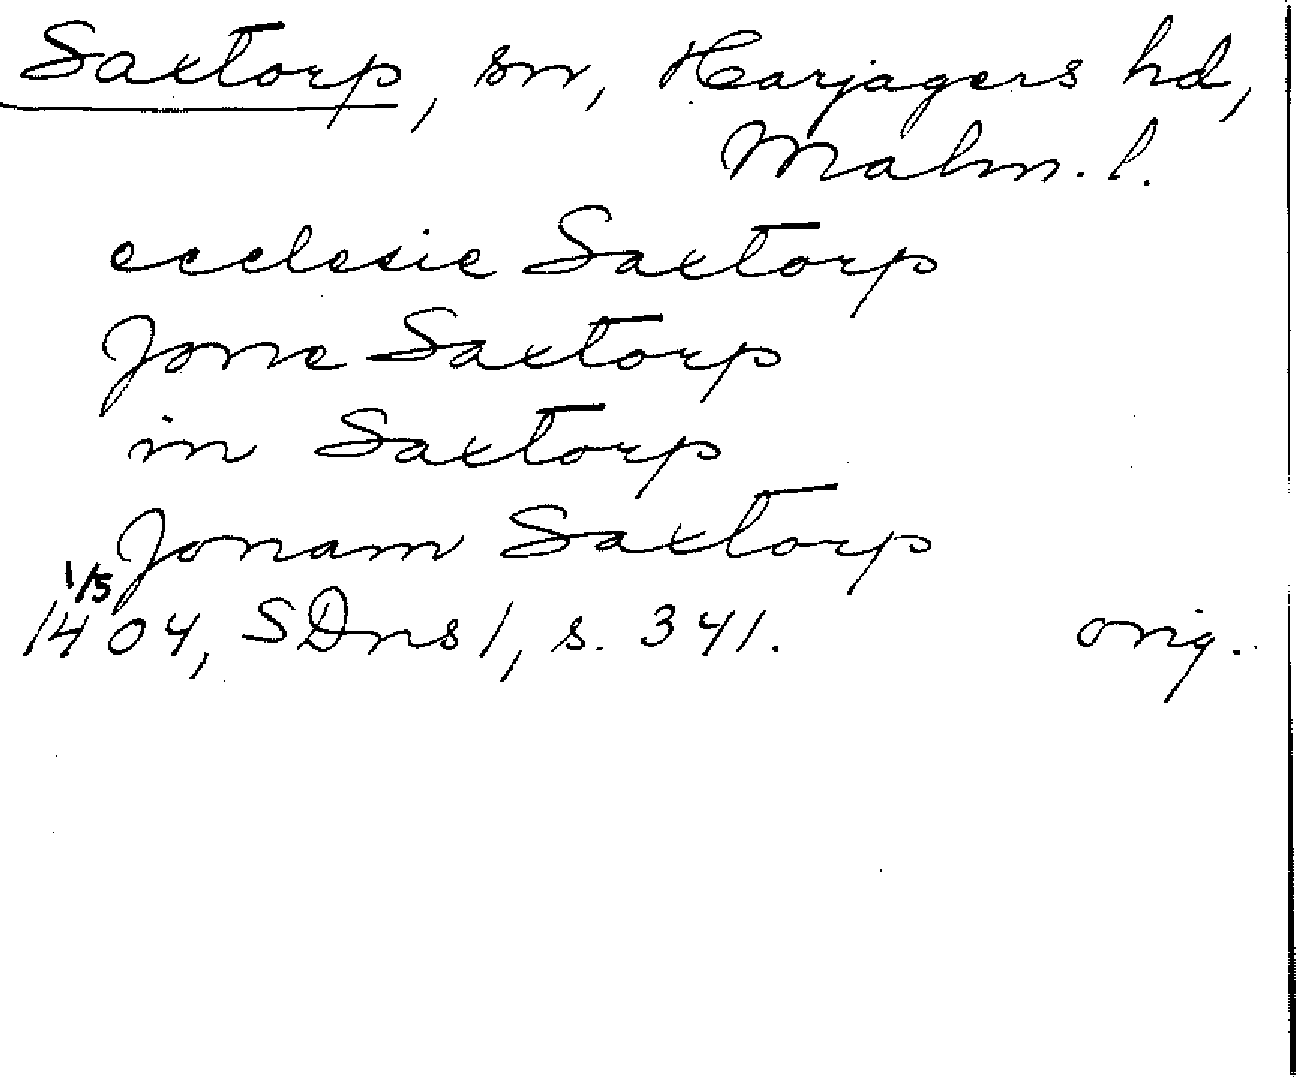 Saxtorp, sn, Harjagers hd,
Malm. l.
ecclesie Saxtorp
Jone Saxtorp
in Saxtorp
Jonam Saxtorp
1/5
1404, SDns 1, s. 341. orig.